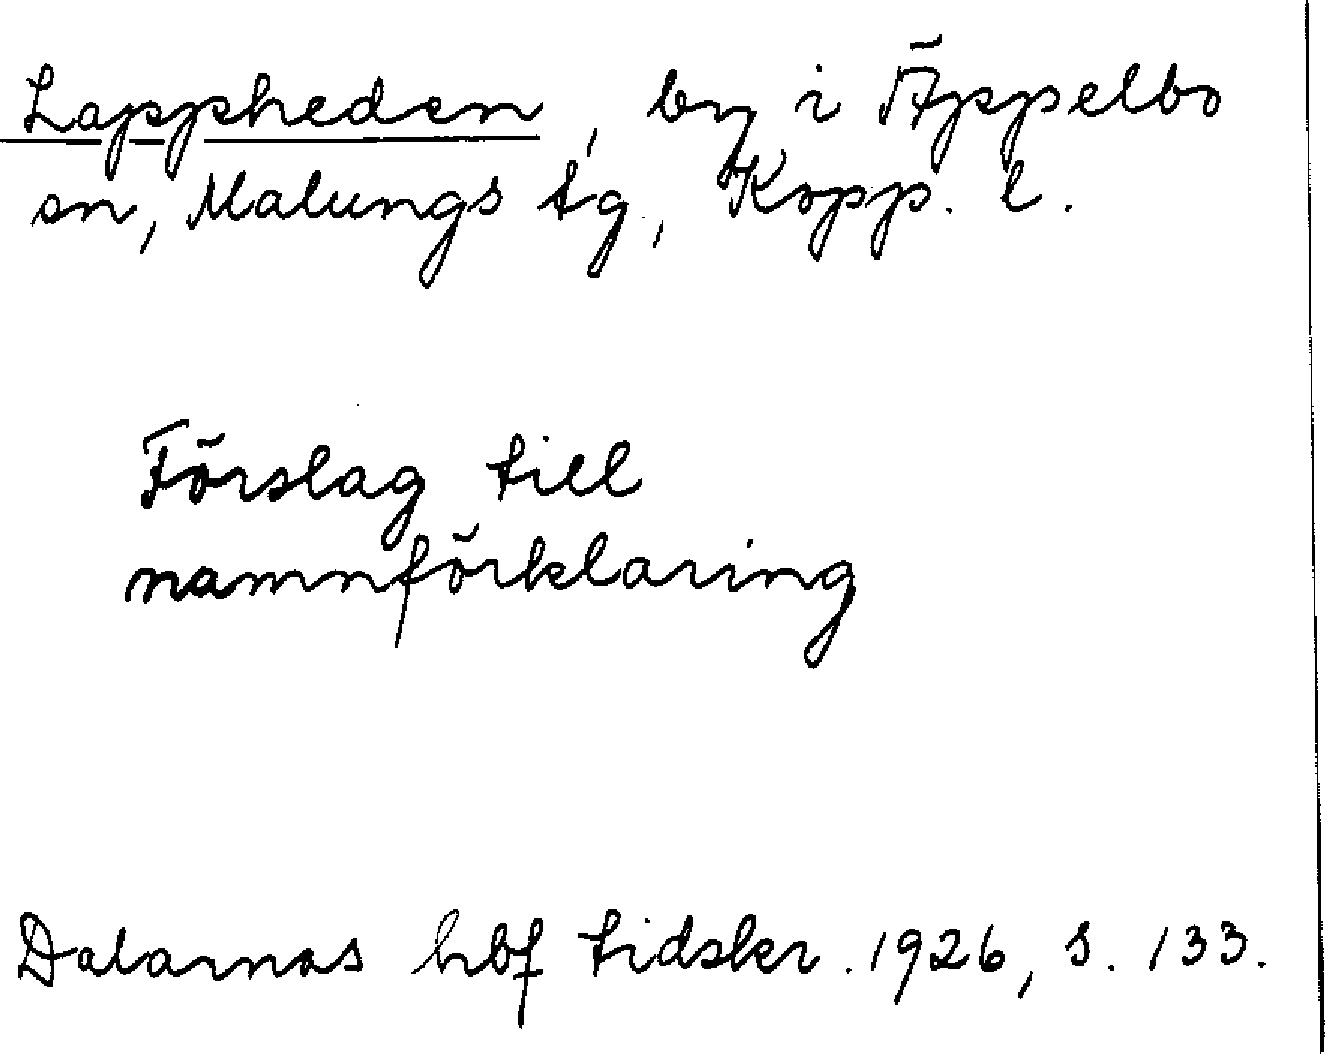 Lappheden, by i Äppelbo
sn, Malungs tg., Kopp. l.
Förslag till
namnförklaring
Dalarnas hbf tidskr. 1926, s. 133.